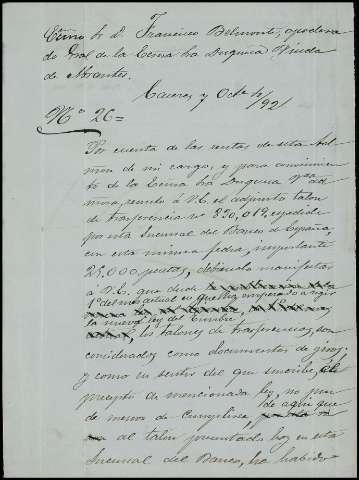 Excmo Sr. D. Francisco Belmonte, apodera
do Gral de la Excma Sra Duquesa Viuda
de Abrantes.
Caceres y Octe 4/92
Nº 26=
Por cuenta de las rentas de esta Ad
mon de mi cargo, y para conocimien
to de la Excma Sra Duquesa Nª ad
mora, remito á V.E. el adjunto talon
de trasferencia nº 230,019, expedido
por esta Sucursal del Banco de España,
con esta misma fecha, importante
25,000 pesetas, debiendo manifestar
á V.E. que desde
1º del mes actual en que ha empezado a regir
la nueva ley del Timbre,
los talones de trasferencias, son
considerados como documentos de giro,
y como en sentir del que suscribe, el
precepto de mencionada ley, no pue
de menos de cumplirse, de aqui que
al talon presentado hoy en esta
Sucursal del Banco, se ha habido